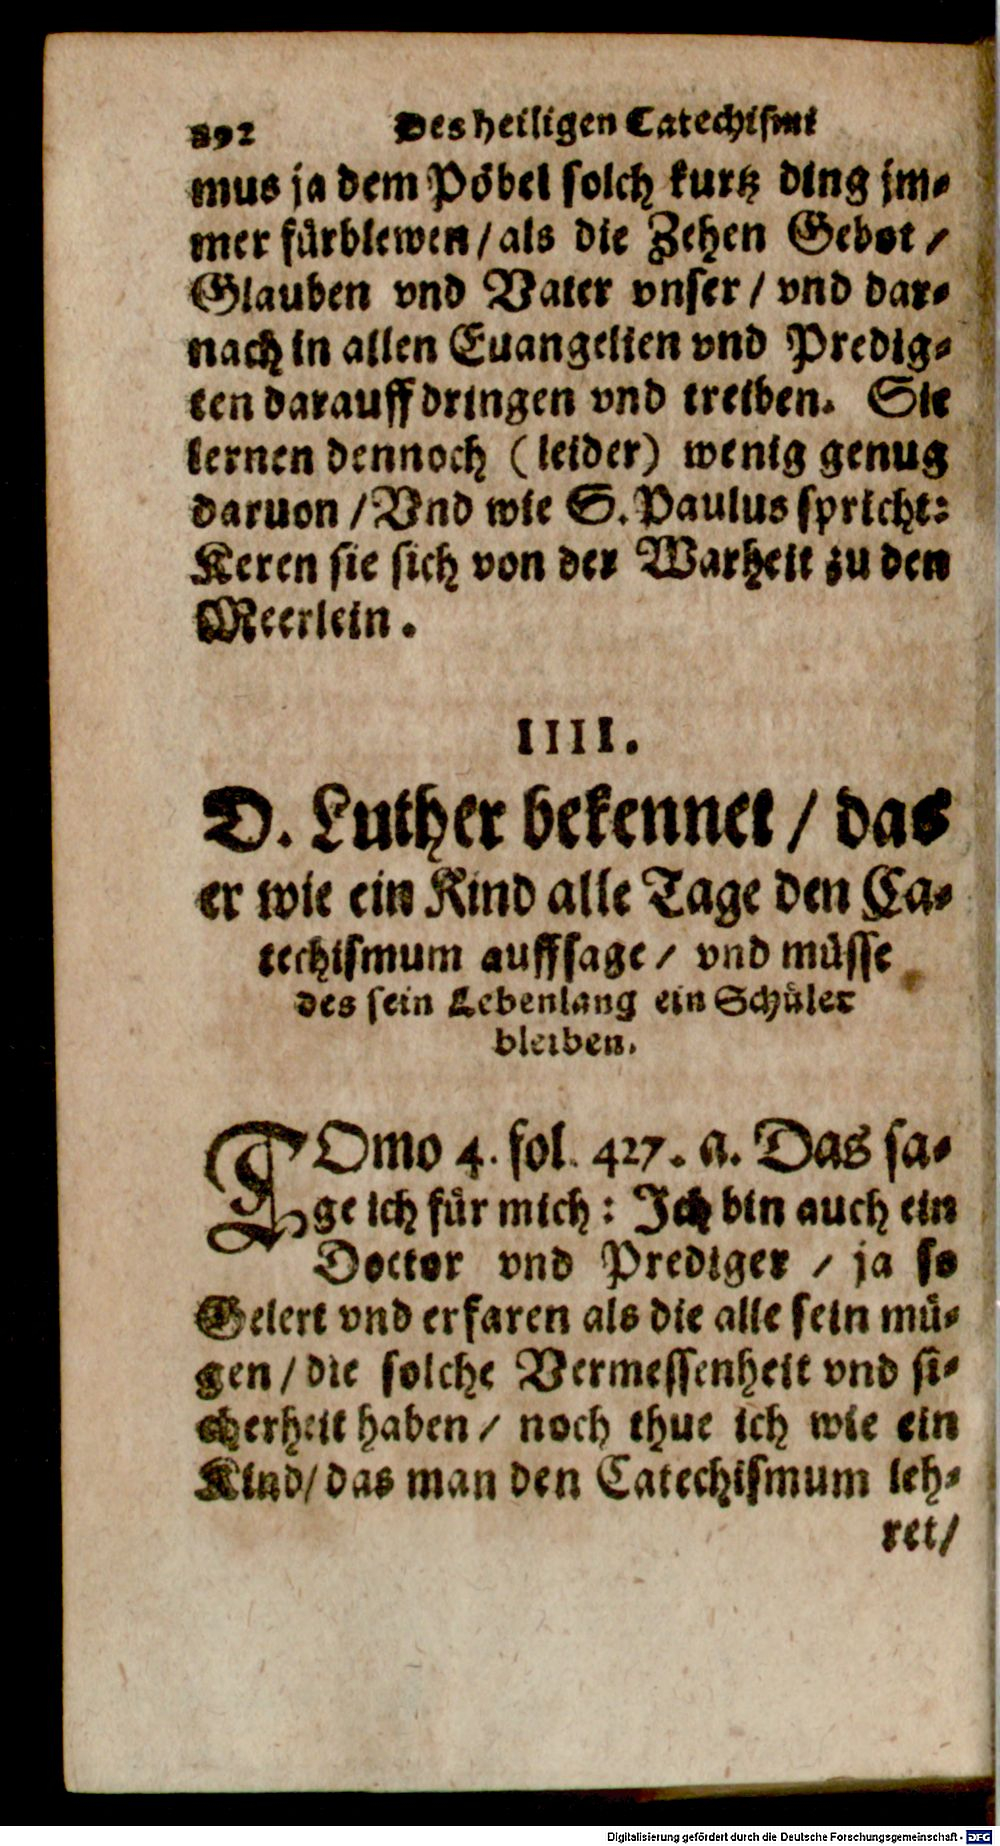 892 Des heiligen Catechismi
mus ja dem Pöbel solch kurtz ding jm⸗
mer fürblewen / als die Zehen Gebot /
Glauben vnd Vater vnser / vnd dar⸗
nach in allen Euangelien vnd Predig⸗
ten darauff dringen vnd treiben. Sie
lernen dennoch (leider) wenig genug
daruon / Vnd wie S. Paulus spricht:
Keren sie sich von der Warheit zu den
Meerlein.
IIII.
D. Luther bekennet / das
er wie ein Kind alle Tage den Ca⸗
techismum auffsage / vnd müsse
des sein Lebenlang ein Schüler
bleiben.
TOmo 4. fol. 427. a. Das sa⸗
ge ich für mich: Ich bin auch ein
Doctor vnd Prediger / ja so
Gelert vnd erfaren als die alle sein mü⸗
gen / die solche Vermessenheit vnd si⸗
cherheit haben / noch thue ich wie ein
Kind / das man den Catechismum leh⸗
ret /
Digitalisierung gefördert durch die Deutsche Forschungsgemeinschaft - DFG